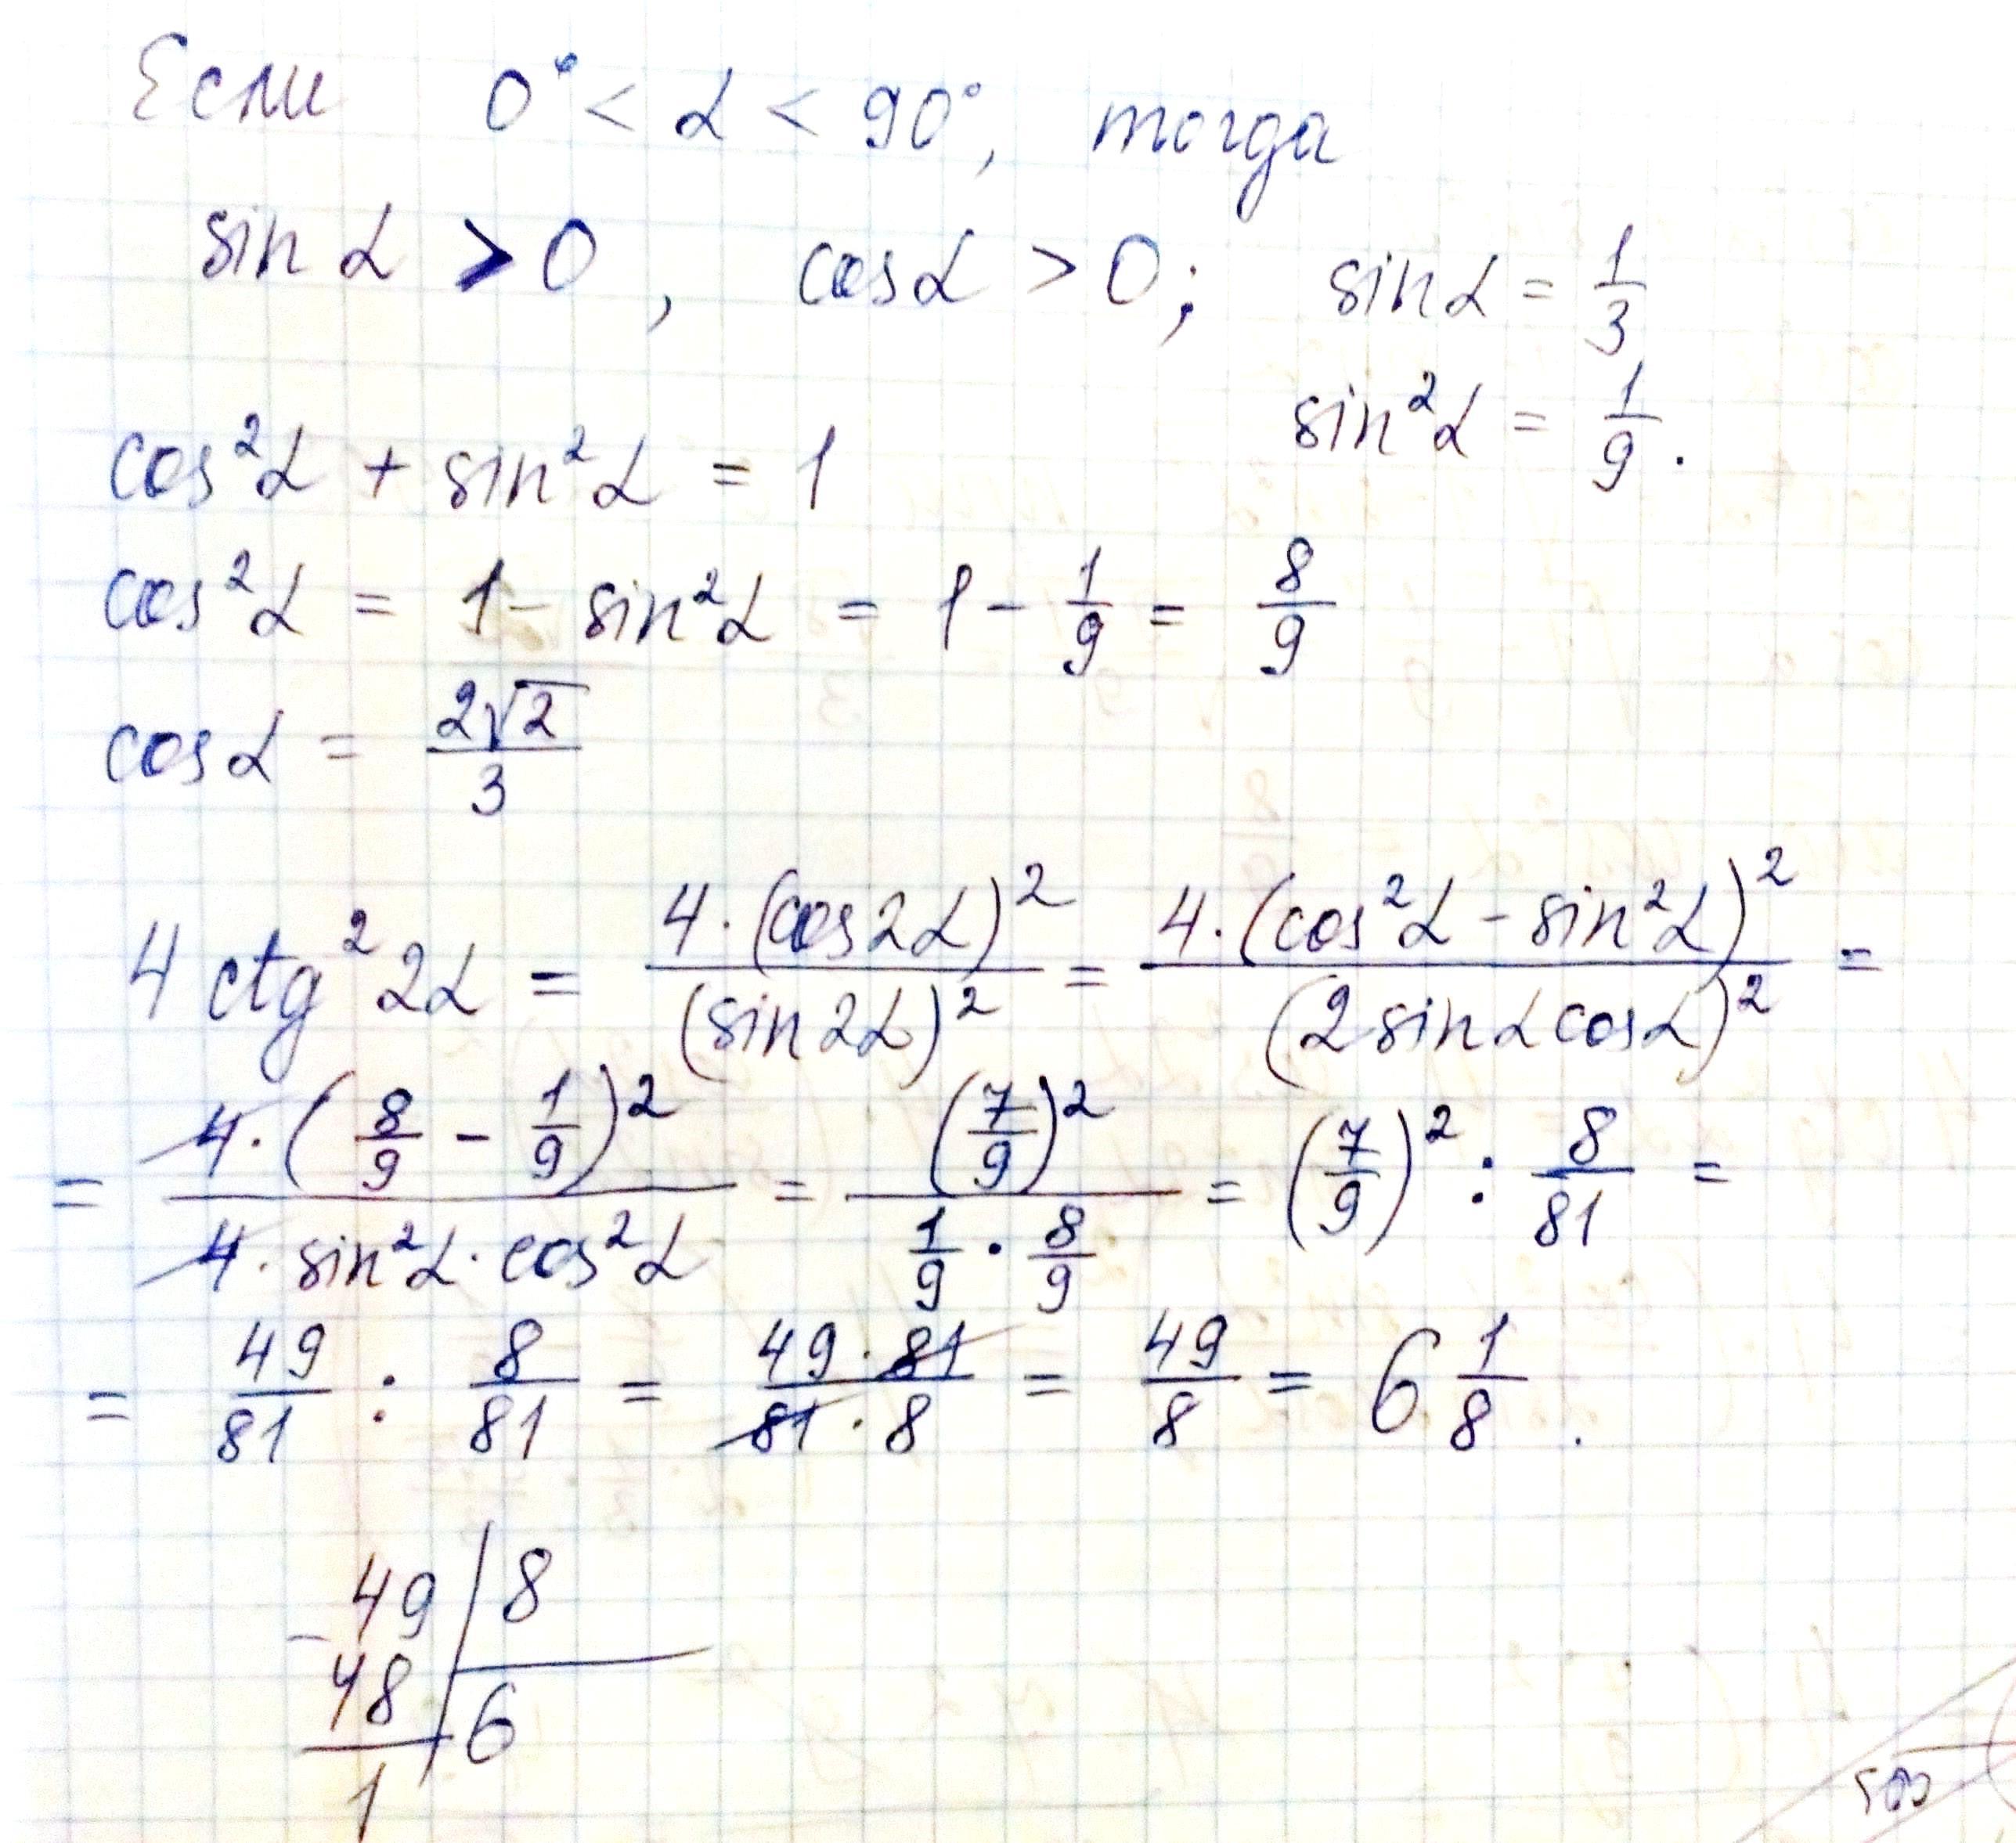 Если 0° < α < 90°, тогда
sin α > 0, cos α > 0; sin α = 1/3
sin²α = 1/9.
cos²α + sin²α = 1
cos²α = 1 - sin²α = 1 - 1/9 = 8/9
cos α = 2√2/3
4 ctg² 2α = 4·(cos 2α)²/(sin 2α)² = 4·(cos²α - sin²α)²/(2 sin α cos α)² =
= 4·(8/9 - 1/9)²/(4·sin²α·cos²α) = (7/9)²/(1/9 · 8/9) = (7/9)² : 8/81 =
= 49/81 : 8/81 = 49·81/(81·8) = 49/8 = 6 1/8.
- 49 | 8
48 | 6
1
cos